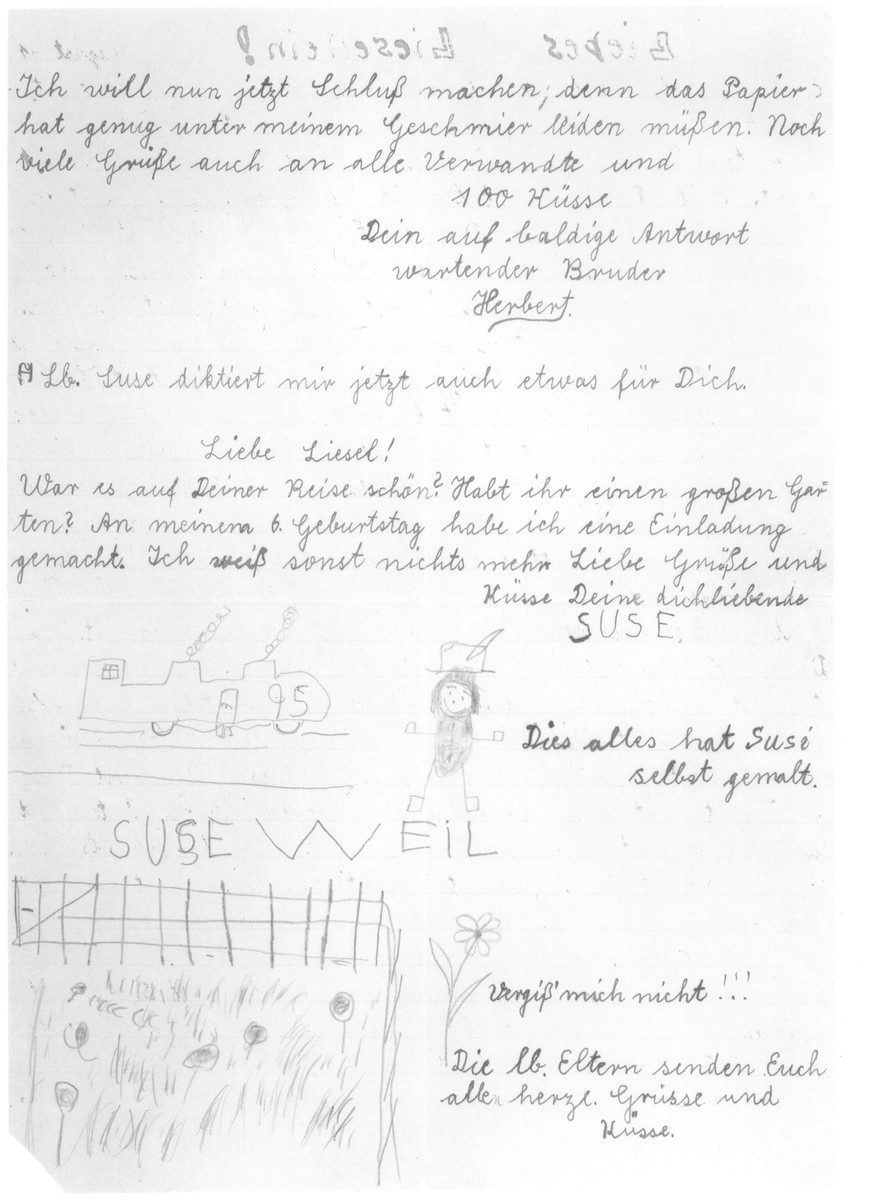 Ich will nun jetzt Schluß machen, denn das Papier
hat genug unter meinem Geschmier leiden müßen. Noch
viele Grüße auch an alle Verwandte und
100 Küsse
Dein auf baldige Antwort
wartender Bruder
Herbert.
Lb. Suse diktiert mir jetzt auch etwas für Dich.
Liebe Liesel!
War es auf Deiner Reise schön? Habt ihr einen großen Gar=
ten? An meinem 6. Geburtstag habe ich eine Einladung
gemacht. Ich weiß sonst nichts mehr Liebe Grüße und
Küsse Deine dichliebende
SUSE
95
Dies alles hat Suse
selbst gemalt.
SUSE WEiL
Vergiß' mich nicht!!!
Die lb. Eltern senden Euch
allen herzl. Grüsse und
Küsse.